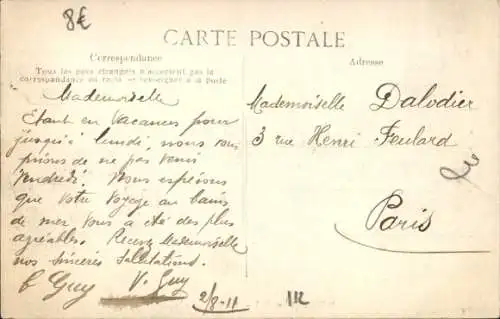 8€
CARTE POSTALE
Correspondance
Tous les pays étrangers n'acceptent pas la
correspondance au recto — Se renseigner à la Poste
Adresse
Mademoiselle
Etant en vacances pour
jusqu'à lundi, nous vous
prions de ne pas venir
Vendredi. Nous espérons
que votre voyage au bains
de mer vous a été des plus
agréables. Recevez Mademoiselle
nos sincères salutations.
Guy V. Guy
2/8-11
Mademoiselle Dalodier
3 rue Henri Feulard
Paris